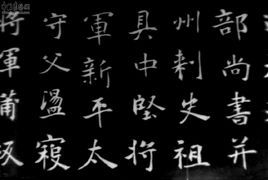 部尚書并
州刺史祖
具中堅將
軍新平太
守父盪寇
將軍蒲坂